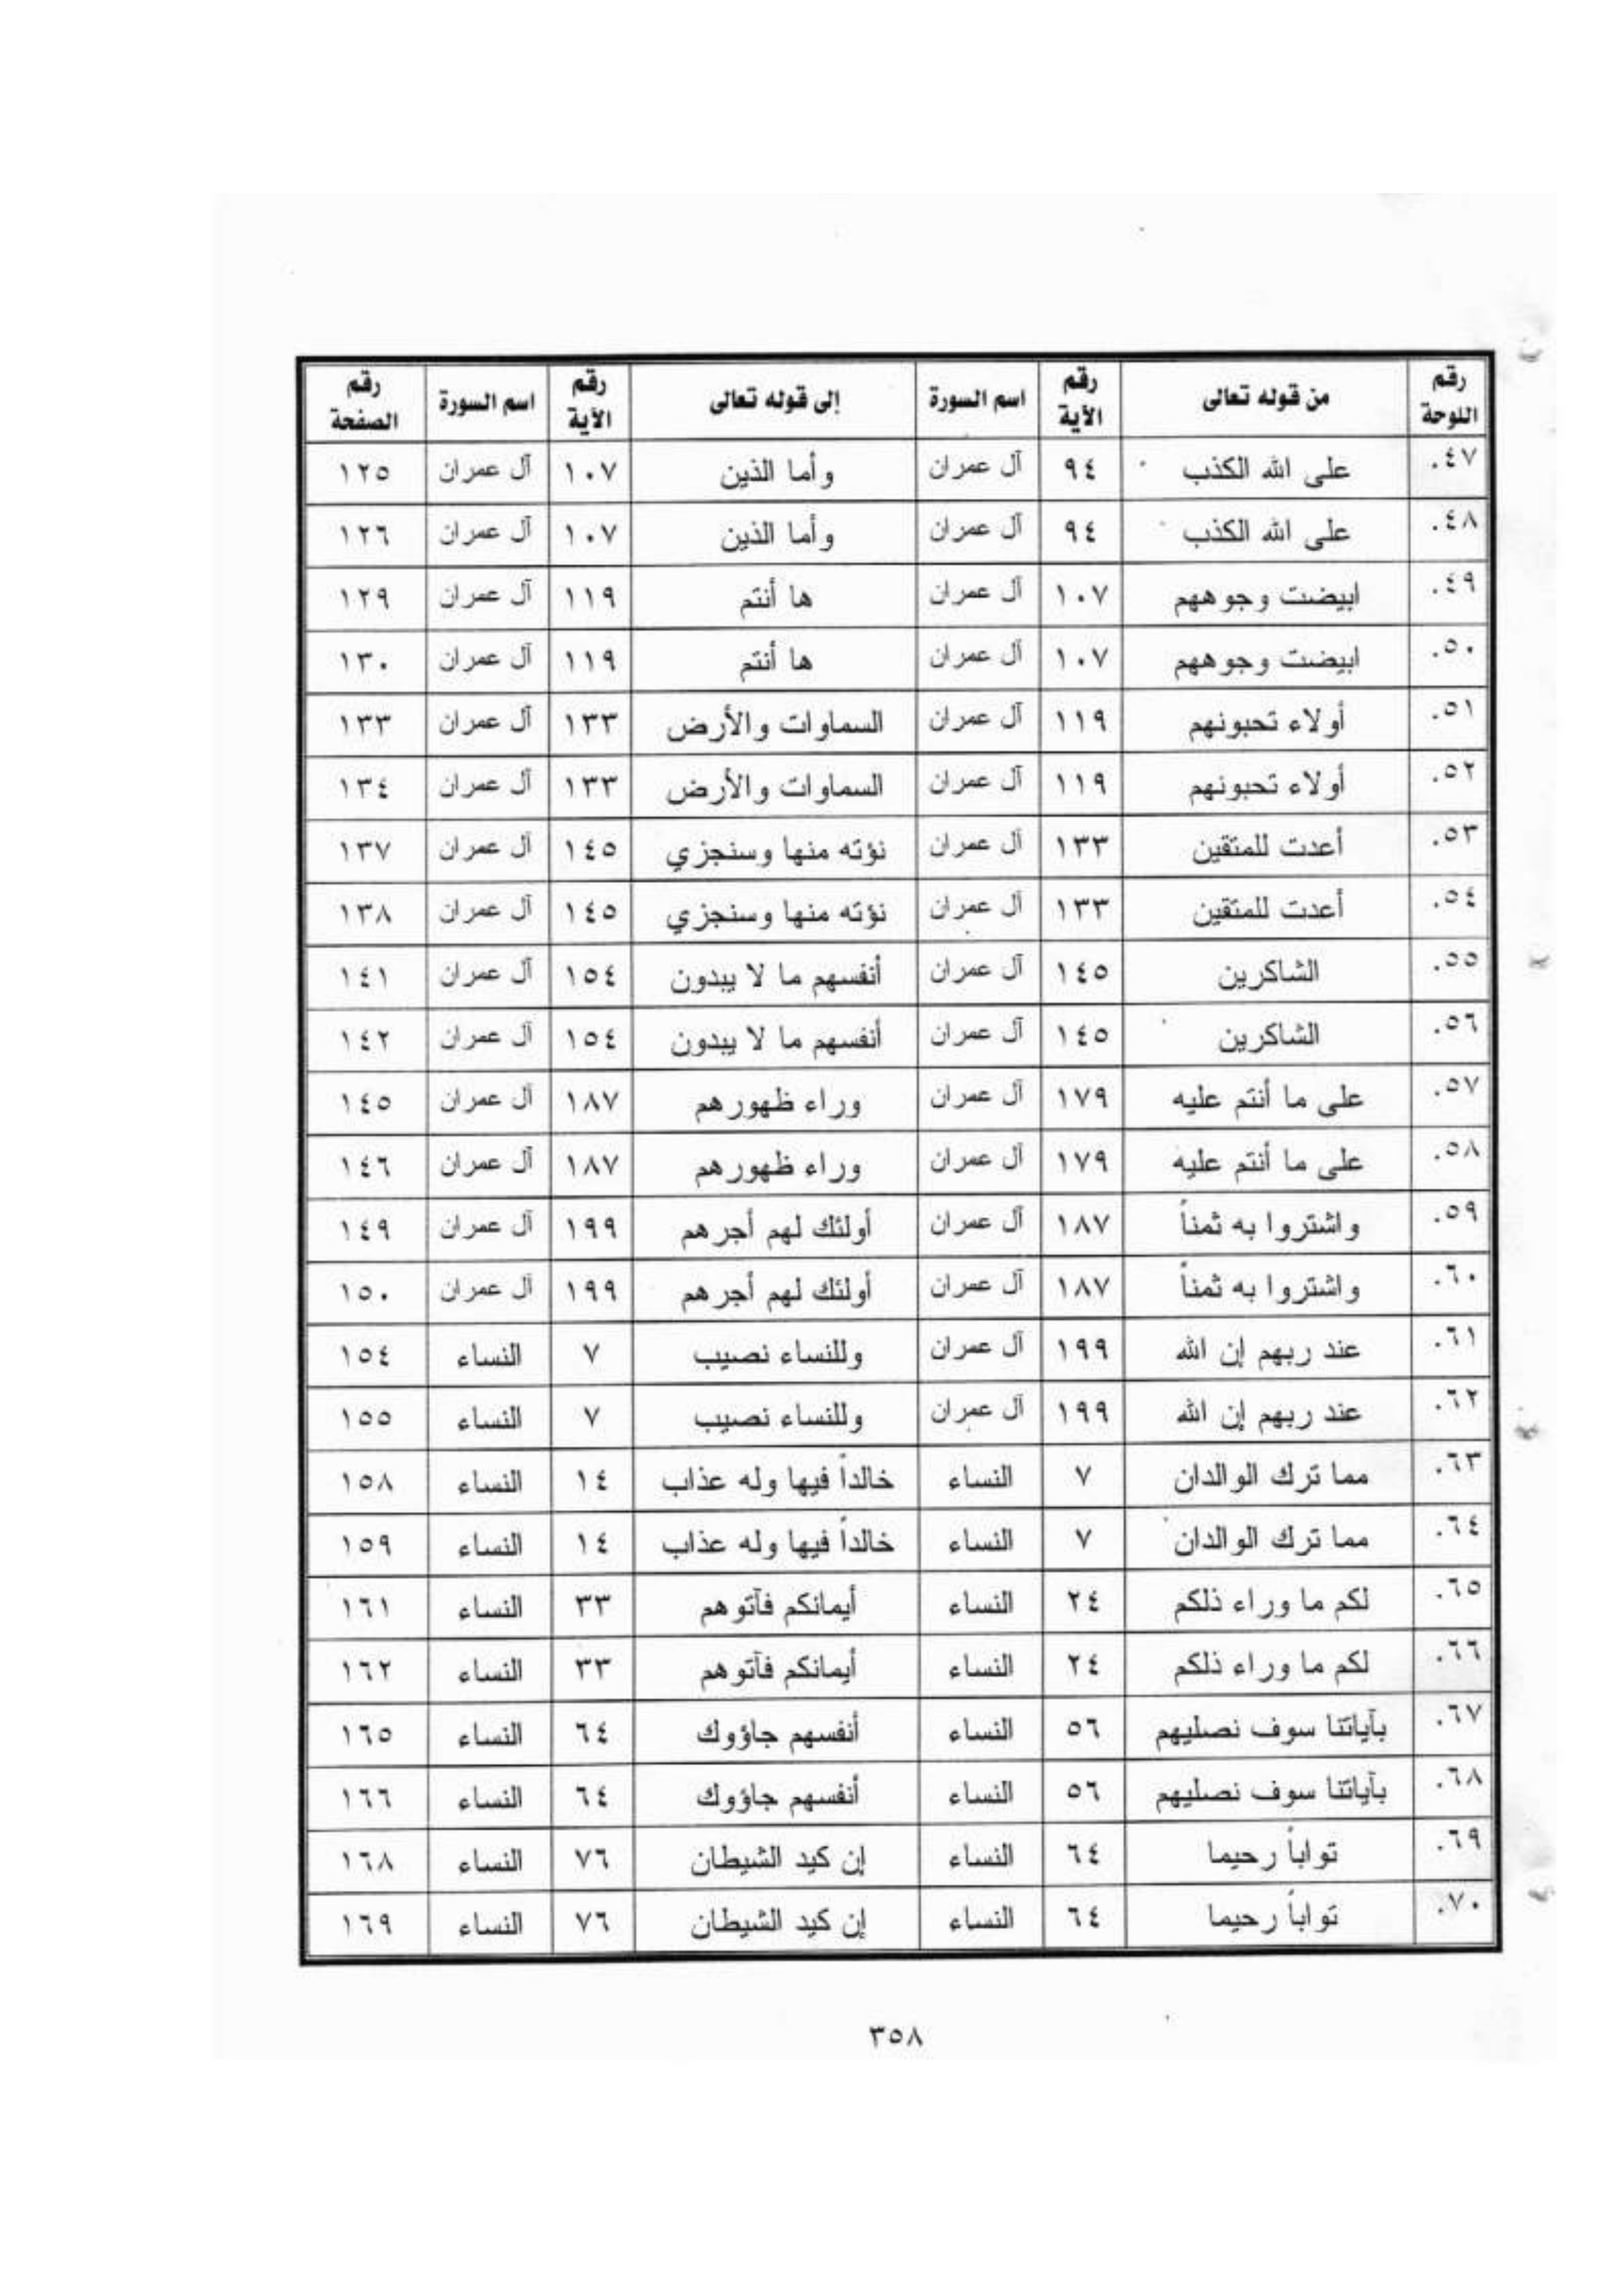 رقم اللوحة من قوله تعالى رقم الآية اسم السورة إلى قوله تعالى رقم الآية اسم السورة رقم الصفحة
٤٧. على الله الكذب ٩٤ آل عمران وأما الذين ١٠٧ آل عمران ١٢٥
٤٨. على الله الكذب ٩٤ آل عمران وأما الذين ١٠٧ آل عمران ١٢٦
٤٩. ابيضت وجوههم ١٠٧ آل عمران ها أنتم ١١٩ آل عمران ١٢٩
٥٠. ابيضت وجوههم ١٠٧ آل عمران ها أنتم ١١٩ آل عمران ١٣٠
٥١. أولاء تحبونهم ١١٩ آل عمران السماوات والأرض ١٣٣ آل عمران ١٣٣
٥٢. أولاء تحبونهم ١١٩ آل عمران السماوات والأرض ١٣٣ آل عمران ١٣٤
٥٣. أعدت للمتقين ١٣٣ آل عمران نؤته منها وسنجزي ١٤٥ آل عمران ١٣٧
٥٤. أعدت للمتقين ١٣٣ آل عمران نؤته منها وسنجزي ١٤٥ آل عمران ١٣٨
٥٥. الشاكرين ١٤٥ آل عمران أنفسهم ما لا يبدون ١٥٤ آل عمران ١٤١
٥٦. الشاكرين ١٤٥ آل عمران أنفسهم ما لا يبدون ١٥٤ آل عمران ١٤٢
٥٧. على ما أنتم عليه ١٧٩ آل عمران وراء ظهورهم ١٨٧ آل عمران ١٤٥
٥٨. على ما أنتم عليه ١٧٩ آل عمران وراء ظهورهم ١٨٧ آل عمران ١٤٦
٥٩. واشتروا به ثمناً ١٨٧ آل عمران أولئك لهم أجرهم ١٩٩ آل عمران ١٤٩
٦٠. واشتروا به ثمناً ١٨٧ آل عمران أولئك لهم أجرهم ١٩٩ آل عمران ١٥٠
٦١. عند ربهم إن الله ١٩٩ آل عمران وللنساء نصيب ٧ النساء ١٥٤
٦٢. عند ربهم إن الله ١٩٩ آل عمران وللنساء نصيب ٧ النساء ١٥٥
٦٣. مما ترك الوالدان ٧ النساء خالداً فيها وله عذاب ١٤ النساء ١٥٨
٦٤. مما ترك الوالدان ٧ النساء خالداً فيها وله عذاب ١٤ النساء ١٥٩
٦٥. لكم ما وراء ذلكم ٢٤ النساء أيمانكم فآتوهم ٣٣ النساء ١٦١
٦٦. لكم ما وراء ذلكم ٢٤ النساء أيمانكم فآتوهم ٣٣ النساء ١٦٢
٦٧. بآياتنا سوف نصليهم ٥٦ النساء أنفسهم جاؤوك ٦٤ النساء ١٦٥
٦٨. بآياتنا سوف نصليهم ٥٦ النساء أنفسهم جاؤوك ٦٤ النساء ١٦٦
٦٩. تواباً رحيما ٦٤ النساء إن كيد الشيطان ٧٦ النساء ١٦٨
٧٠. تواباً رحيما ٦٤ النساء إن كيد الشيطان ٧٦ النساء ١٦٩
٣٥٨